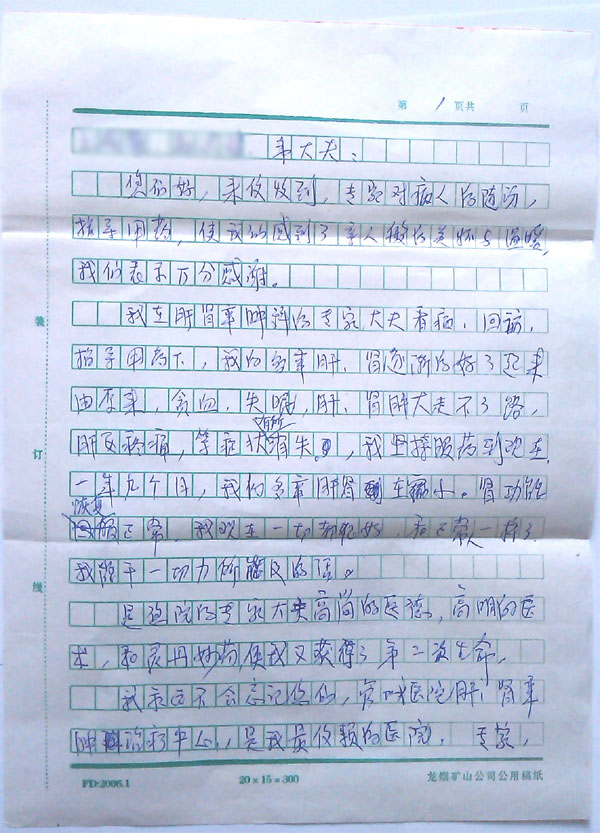 第 1 页共 页
大夫：
您们好，来信收到，专家对病人的随访，
指导用药，使我们感到了亲人般的关怀与温暖，
我们表示万分感谢。
我在肝肾囊肿科的专家大夫看病、回访、
指导用药下，我的多囊肝、肾逐渐的好了起来
由原来，贫血，失眠，肝、肾肿大走不了路，
肝区疼痛，等症状消失。，我坚持服药到现在
一年九个月，我的多囊肝肾 在缩小。肾功能
恢复
正常，我现在一切都很好，和正常人一样了
我能干一切力所能及的活。
是贵院的专家大夫高尚的医德，高明的医
术，和灵丹妙药使我又获得了第二次生命。
我永远不会忘记您们， 医院肝、肾囊
肿 治疗中心，是我最信赖的医院。专家，
装
订
线
FD:2006.1
20×15=300
龙烟矿山公司公用稿纸